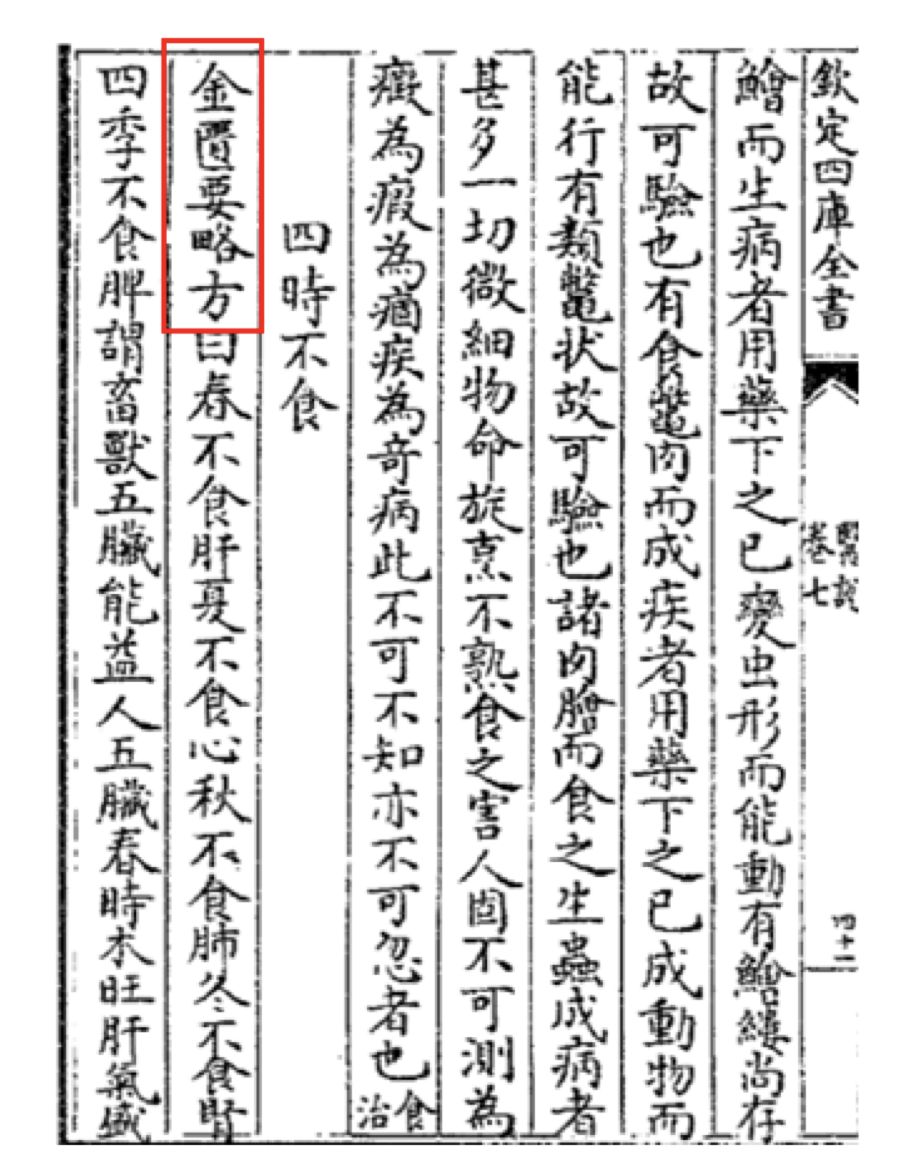 欽定四庫全書
醫說
卷七
四十二
鱠而生病者用藥下之已變虫形而能動有鱠縷尚存
故可驗也有食鼈肉而成疾者用藥下之已成動物而
能行有類鼈状故可驗也諸肉膾而食之生蟲成病者
甚多一切微細物命旋烹不熟食之害人固不可測為
癥為瘕為痼疾為奇病此不可不知亦不可忽者也食治
四時不食
金匱要略方曰春不食肝夏不食心秋不食肺冬不食腎
四季不食脾謂畜獸五臟能益人五臟春時木旺肝氣盛